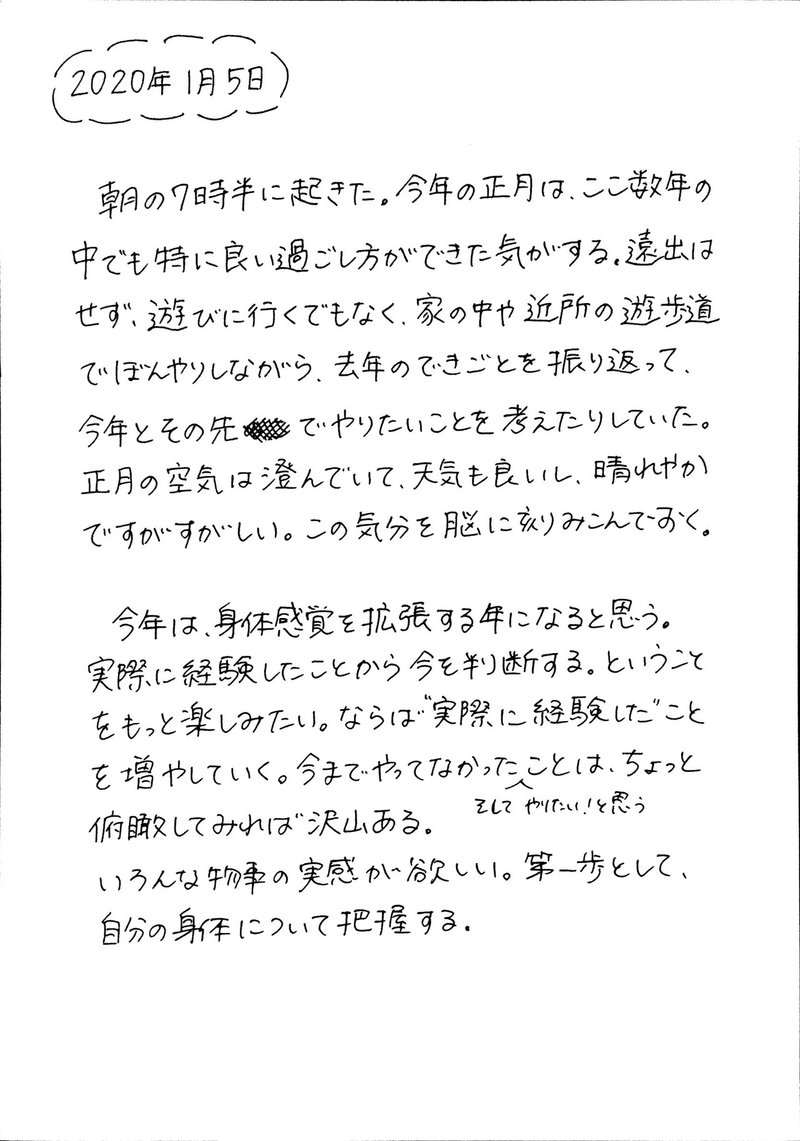 2020年1月5日
朝の7時半に起きた。今年の正月は、ここ数年の
中でも特に良い過ごし方ができた気がする。遠出は
せず、遊びに行くでもなく、家の中や近所の遊歩道
でぼんやりしながら、去年のできごとを振り返って、
今年とその先でやりたいことを考えたりしていた。
正月の空気は澄んでいて、天気も良いし、晴れやか
ですがすがしい。この気分を脳に刻みこんでおく。
今年は、身体感覚を拡張する年になると思う。
実際に経験したことから今を判断する。ということ
をもっと楽しみたい。ならば"実際に経験した"こと
を増やしていく。今までやってなかったことは、ちょっと
そして やりたい!と思う
俯瞰してみれば沢山ある。
いろんな物事の実感が欲しい。第一歩として、
自分の身体について把握する。